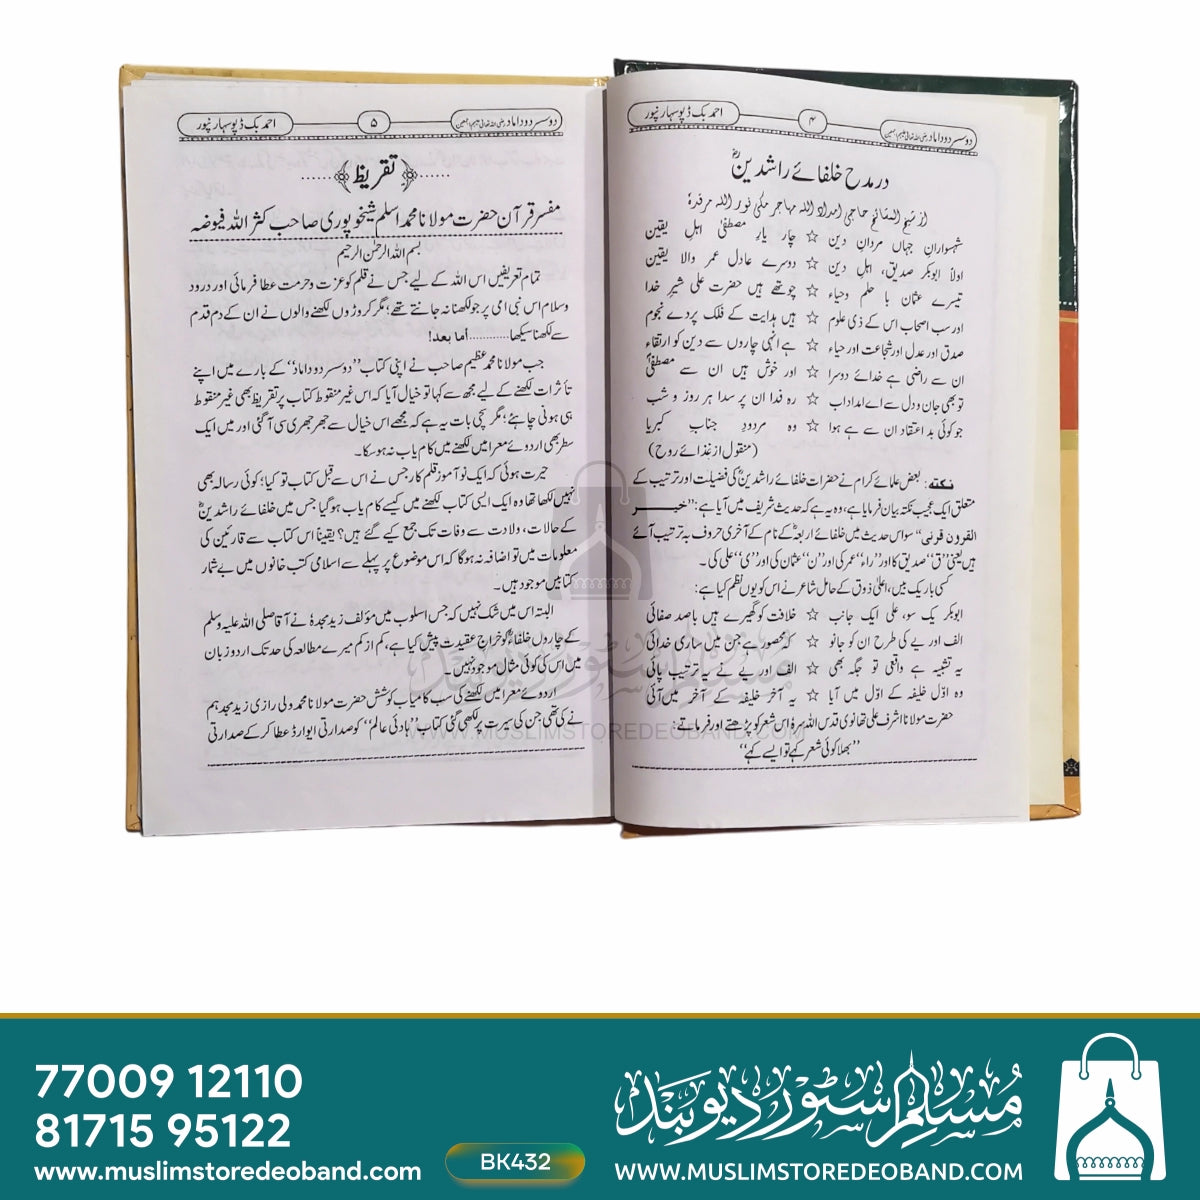 دوسسر دوداماد رضی اللہ تعالیٰ علیہم اجمعین
۴
احمد بک ڈپو سہارنپور
در مدح خلفائے راشدینؓ
از شیخ المشائخ حاجی امداد اللہ مہاجر مکی نور اللہ مرقدہٗ
شہسوارانِ جہاں مردانِ دین ☆ چار یارِ مصطفیٰ اہلِ یقین
اولاً ابوبکر صدیق، اہلِ دین ☆ دوسرے عادل عمر والا یقین
تیسرے عثمان با حلم وحیاء ☆ چوتھے ہیں حضرت علی شیرِ خدا
اور سب اصحاب اس کے ذی علوم ☆ ہیں ہدایت کے فلک پر دے نجوم
صدق اور عدل اور شجاعت اور حیاء ☆ ہے انہی چاروں سے دین کو ارتقاء
ان سے راضی ہے خدائے دوسرا ☆ اور خوش ہیں ان سے مصطفیٰؐ
تو بھی جان و دل سے اے امداد اب ☆ رہ فدا ان پر سدا ہر روز و شب
جو کوئی بد اعتقاد ان سے ہے ہوا ☆ وہ مردودِ جناب کبریا
(منقول از غذائے روح)
نکتہ: بعض علمائے کرام نے حضرات خلفائے راشدینؓ کی فضیلت اور ترتیب کے
متعلق ایک عجیب نکتہ بیان فرمایا ہے، وہ یہ ہے کہ حدیث شریف میں آیا ہے: ”خیر
القرون قرنی“ سو اس حدیث میں خلفائے اربعہؓ کے نام کے آخری حروف بہ ترتیب آئے
ہیں یعنی ”ق“ صدیق کا اور ”راء“ عمر کی اور ”ن“ عثمان کی اور ”ی“ علی کی۔
کسی باریک بیں، اعلیٰ ذوق کے حامل شاعر نے اس کو یوں نظم کیا ہے:
ابوبکر یک سو، علی ایک جانب ☆ خلافت کو گھیرے ہیں باصد صفائی
الف اور یے کی طرح ان کو جانو ☆ کہ محصور ہے جن میں ساری خدائی
یہ تشبیہ ہے واقعی تو جگہ بھی ☆ الف اور یے نے یہ ترتیب پائی
وہ اوّل خلیفہ کے اوّل میں آیا ☆ یہ آخر خلیفہ کے آخر میں آئی
حضرت مولانا اشرف علی تھانوی قدس اللہ سرہٗ اس شعر کو پڑھتے اور فرماتے:
”بھلا کوئی شعر کہے تو ایسے کہے“
دوسسر دوداماد رضی اللہ تعالیٰ علیہم اجمعین
۵
احمد بک ڈپو سہارنپور
تقریظ
مفسر قرآن حضرت مولانا محمد اسلم شیخوپوری صاحب کثر اللہ فیوضہ
بسم اللہ الرحمٰن الرحیم
تمام تعریفیں اس اللہ کے لیے جس نے قلم کو عزت و حرمت عطا فرمائی اور درود
وسلام اس نبی امی پر جو لکھنا نہ جانتے تھے؛ مگر کروڑوں لکھنے والوں نے ان کے دم قدم
سے لکھنا سیکھا............أما بعد!
جب مولانا محمد عظیم صاحب نے اپنی کتاب ”دوسسر دوداماد“ کے بارے میں اپنے
تأثرات لکھنے کے لیے مجھ سے کہا تو خیال آیا کہ اس غیر منقوط کتاب پر تقریظ بھی غیر منقوط
ہی ہونی چاہئے؛ مگر سچی بات یہ ہے کہ مجھے اس خیال سے جھرجھری سی آگئی اور میں ایک
سطر بھی اردوئے معرا میں لکھنے میں کام یاب نہ ہوسکا۔
حیرت ہوئی کہ ایک نو آموز قلم کار جس نے اس سے قبل کتاب تو کیا؛ کوئی رسالہ بھی
نہیں لکھا تھا وہ ایک ایسی کتاب لکھنے میں کیسے کام یاب ہوگیا جس میں خلفائے راشدینؓ
کے حالات، ولادت سے وفات تک جمع کیے گئے ہیں؟ یقیناً اس کتاب سے قارئین کی
معلومات میں تو اضافہ نہ ہوگا کہ اس موضوع پر پہلے سے اسلامی کتب خانوں میں بے شمار
کتابیں موجود ہیں۔
البتہ اس میں شک نہیں کہ جس اسلوب میں مؤلف زید مجدہٗ نے آقا صلی اللہ علیہ وسلم
کے چاروں خلفاءؓ کو خراجِ عقیدت پیش کیا ہے، کم از کم میرے مطالعہ کی حد تک اردو زبان
میں اس کی کوئی مثال موجود نہیں۔
اردوئے معرا میں لکھنے کی سب کامیاب کوشش حضرت مولانا محمد ولی رازی زید مجدہم
نے کی تھی جن کی سیرت پر لکھی گئی کتاب ”ہادئ عالم“ کو صدارتی ایوارڈ عطا کر کے صدارتی
مسلم سٹور دیوبند
WWW.MUSLIMSTOREDEOBAND.COM
77009 12110
81715 95122
www.muslimstoredeoband.com
BK432
مسلم سٹور دیوبند
WWW.MUSLIMSTOREDEOBAND.COM